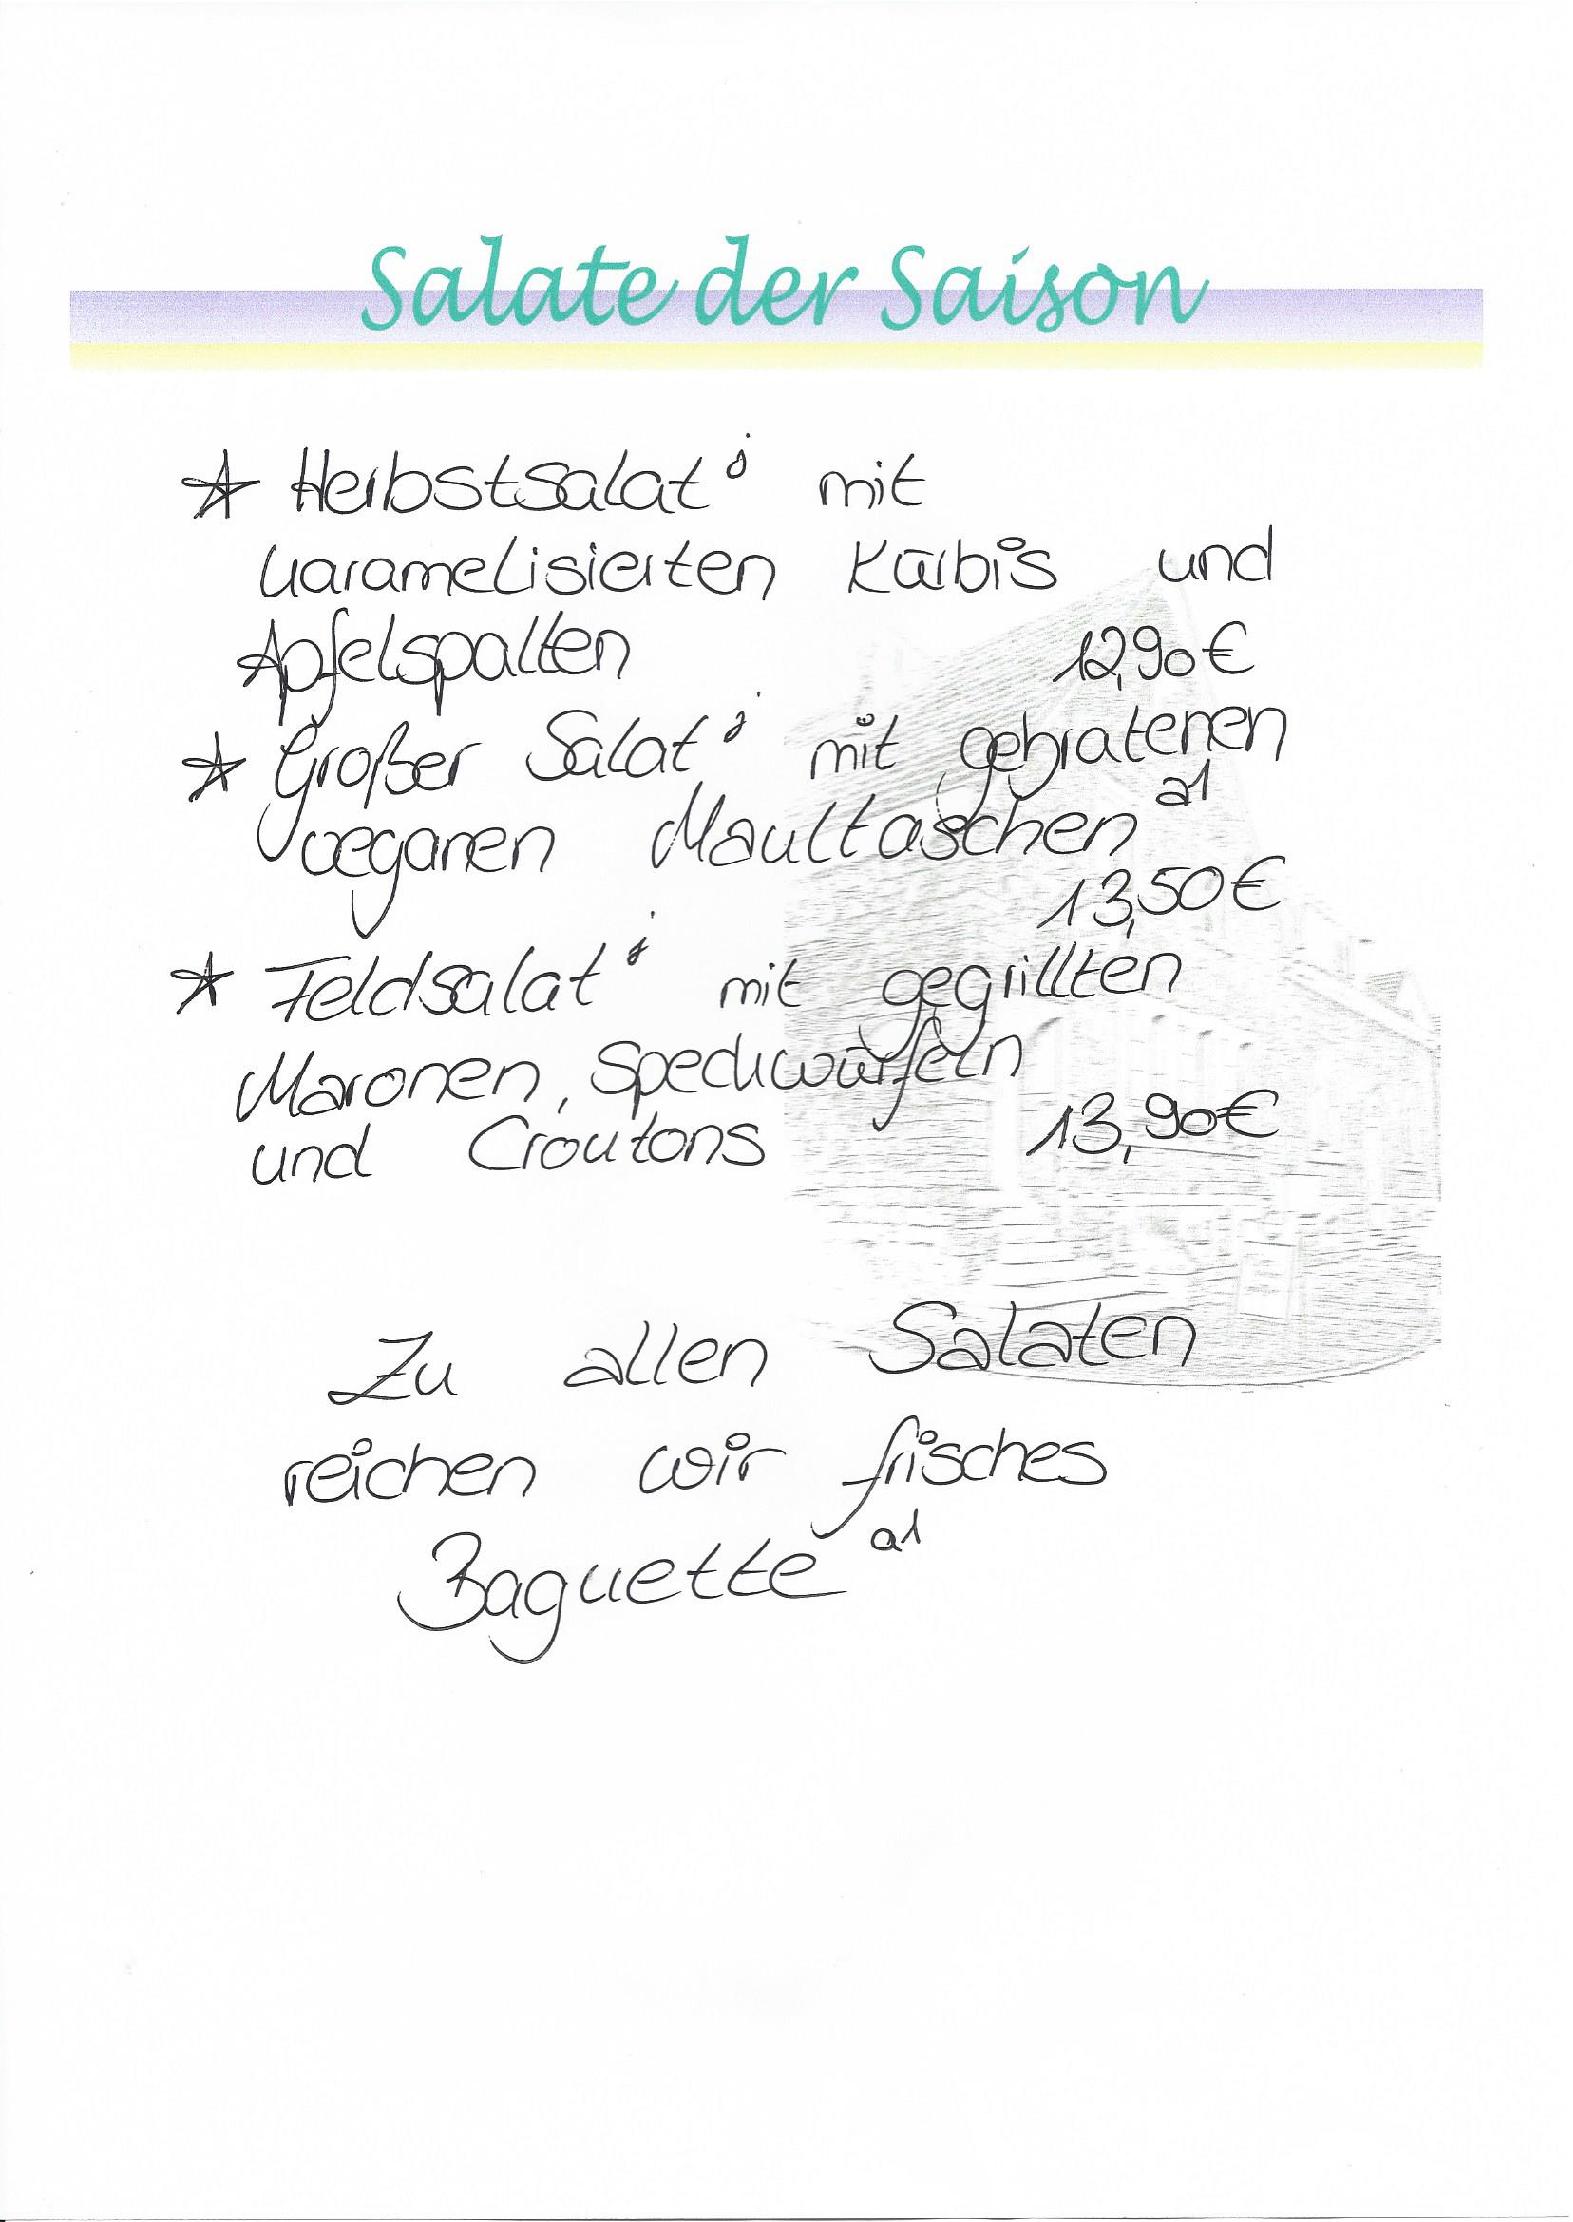 Salate der Saison
☆ Herbstsalat j mit
karamelisierten Kürbis und
Apfelspalten 12,90€
☆ Großer Salat j mit gebratenen
veganen Maultaschen a1
13,50€
☆ Feldsalat j mit gegrillten
Maronen, Speckwürfeln
und Croutons 13,90€
Zu allen Salaten
reichen wir frisches
Baguette a1